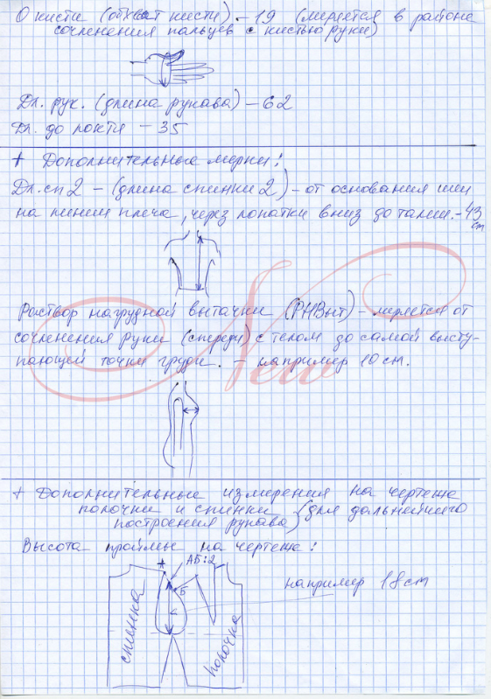 О кисти (обхват кисти) - 19 (меряется в районе
сочленения пальцев с кистью руки)
Дл. рук. (длина рукава) - 62
Дл. до локтя - 35
+ Дополнительные мерки:
Дл.сп2 - (длина спинки 2) - от основания шеи
на линии плеча, через лопатки вниз до талии. - 43
cm
Раствор нагрудной вытачки (РНВыт) - меряется от
сочленения руки (спереди) с телом до самой высту-
пающей точки груди. - например 10 см.
New
+ Дополнительные измерения на чертеже
полочки и спинки (для дальнейшего
построения рукава)
Высота проймы на чертеже:
А
АБ:2
Б
например 18 cm
спинка
полочка